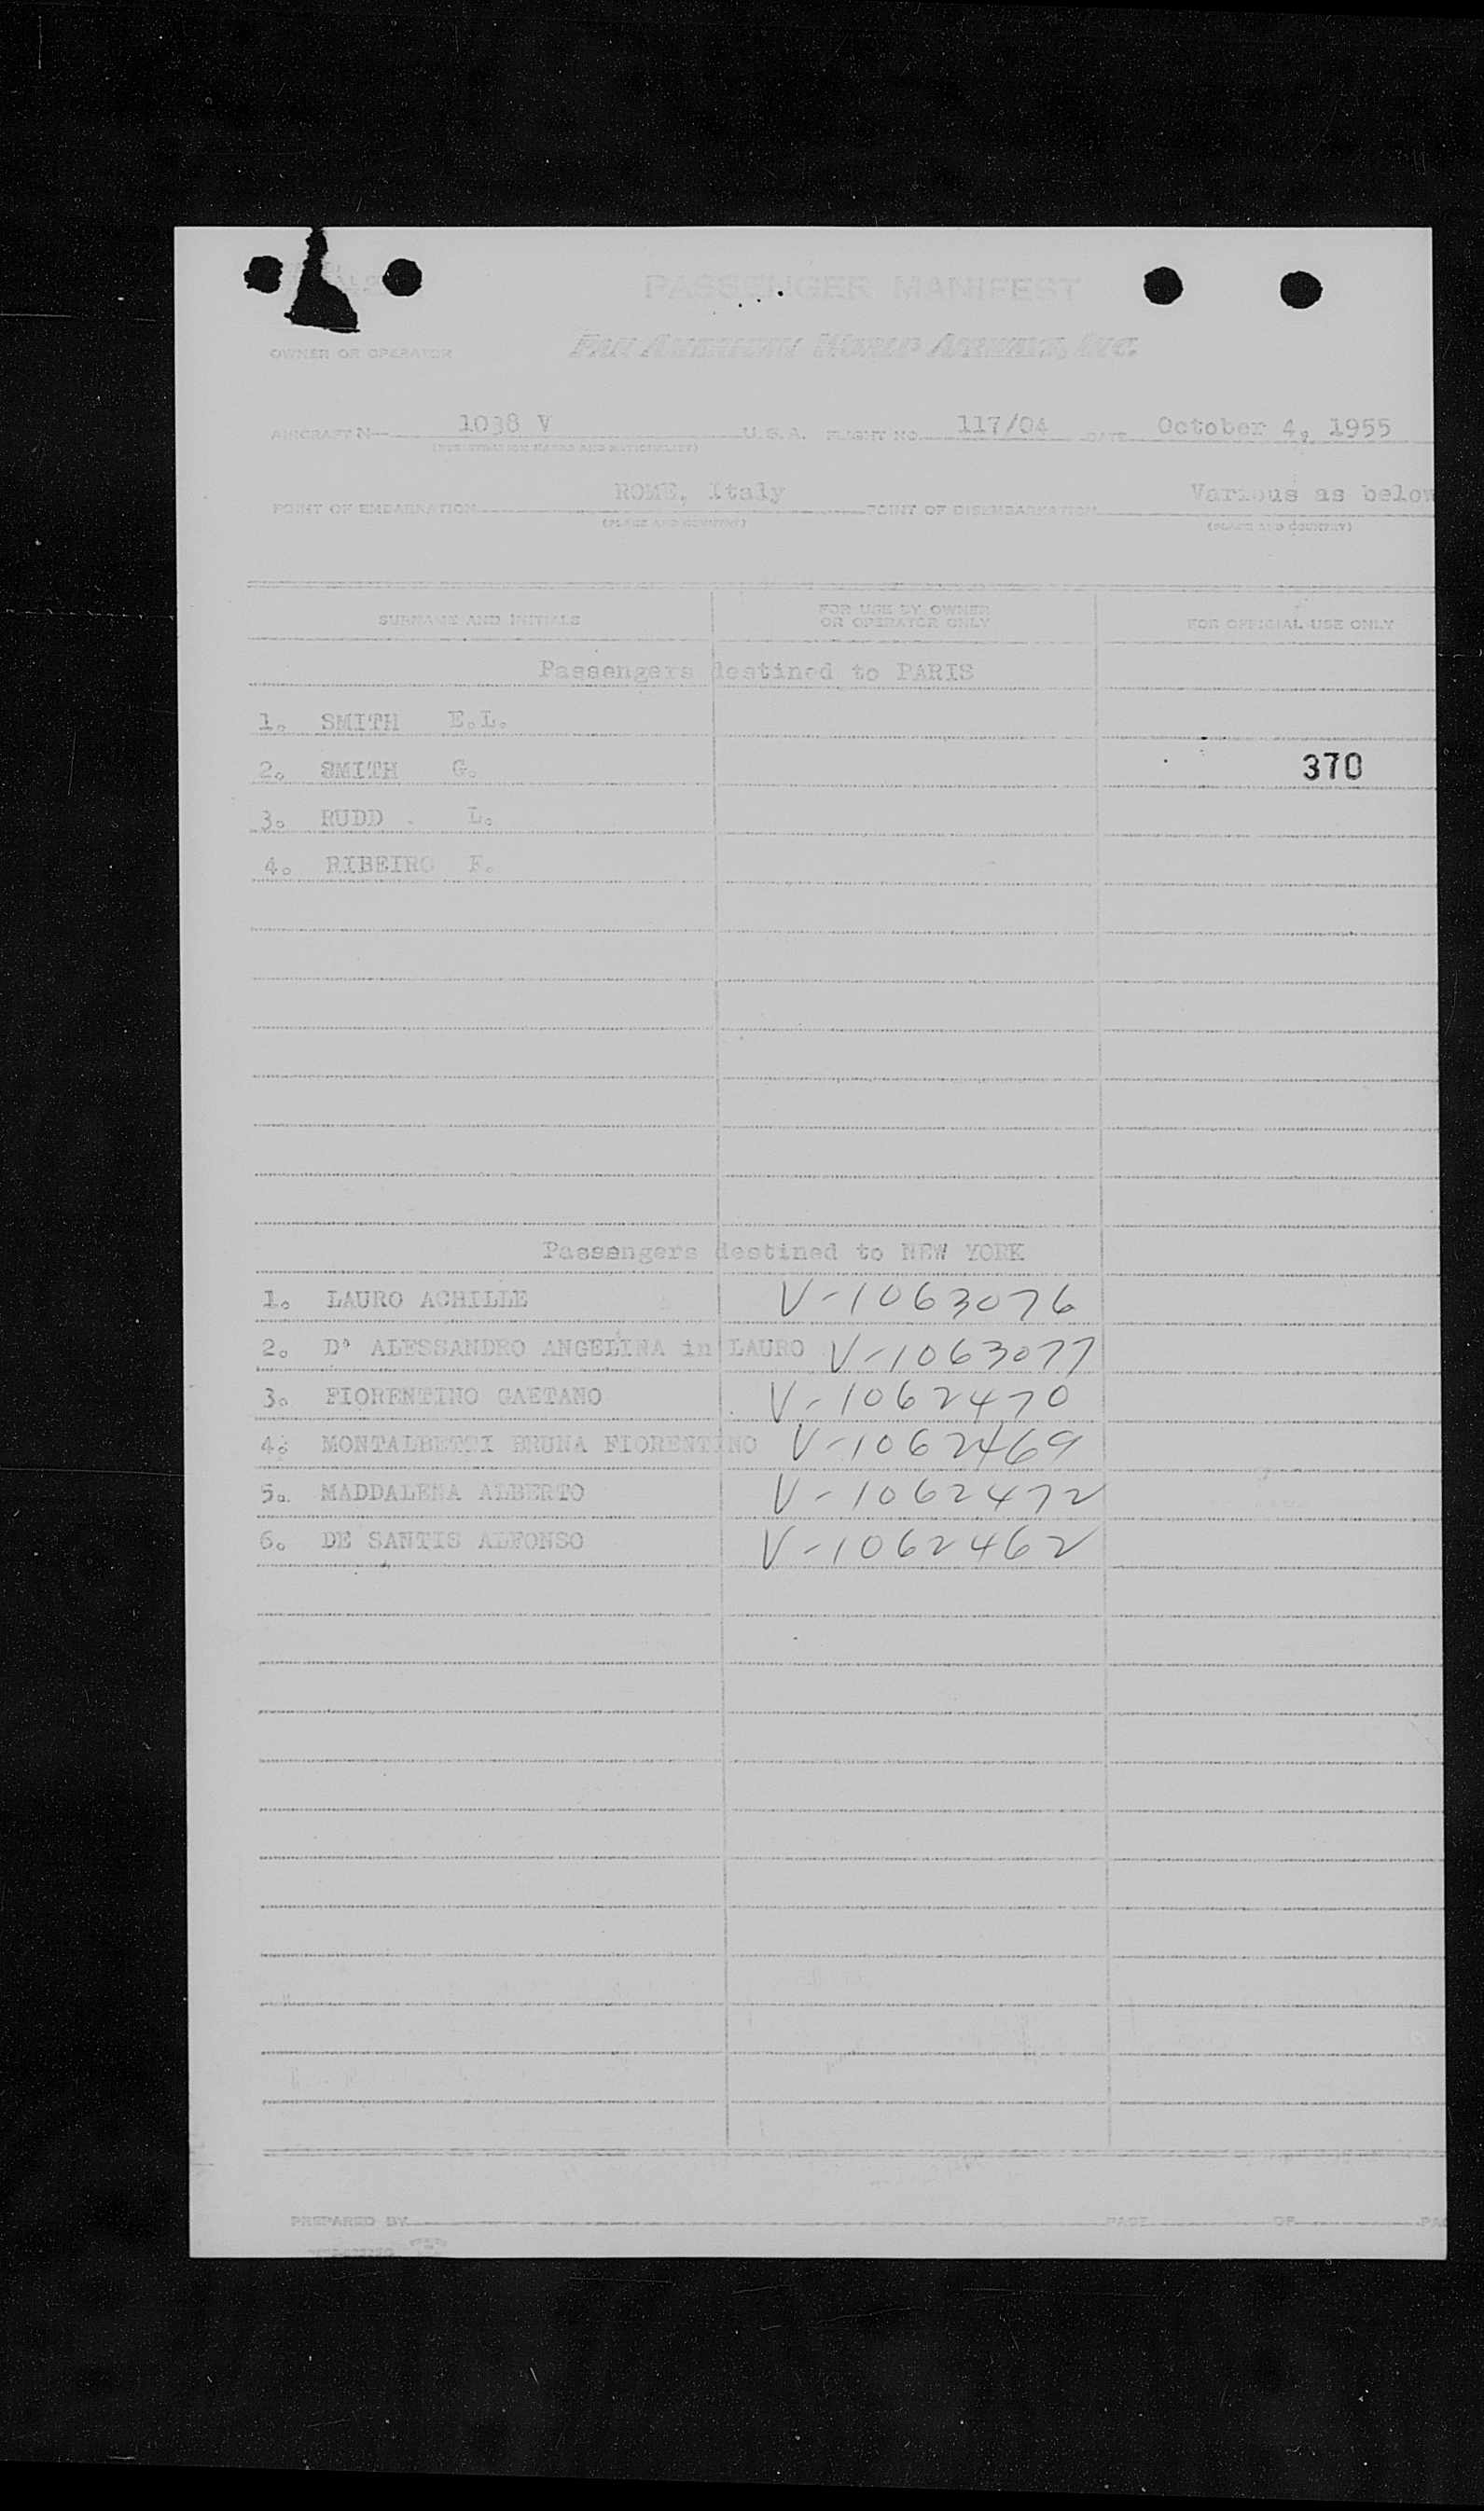 PASSENGER MANIFEST
OWNER OR OPERATOR PAN AMERICAN WORLD AIRWAYS, INC.
AIRCRAFT N 1038 V U.S.A. FLIGHT NO. 117/04 DATE October 4, 1955
(REGISTRATION MARKS AND NATIONALITY)
POINT OF EMBARKATION ROME, Italy POINT OF DISEMBARKATION Various as below
(PLACE AND COUNTRY) (PLACE AND COUNTRY)
SURNAME AND INITIALS FOR USE BY OWNER OR OPERATOR ONLY FOR OFFICIAL USE ONLY
Passengers destined to PARIS
1. SMITH E.L.
2. SMITH G. 370
3. RUDD L.
4. RIBEIRO F.
Passengers destined to NEW YORK
1. LAURO ACHILLE V-1063076
2. D' ALESSANDRO ANGELINA in LAURO V-1063077
3. FIORENTINO GAETANO V-1062470
4. MONTALBETTI BRUNA FIORENTINO V-1062469
5. MADDALENA ALBERTO V-1062472
6. DE SANTIS ALFONSO V-1062462
PREPARED BY PAGE OF PA